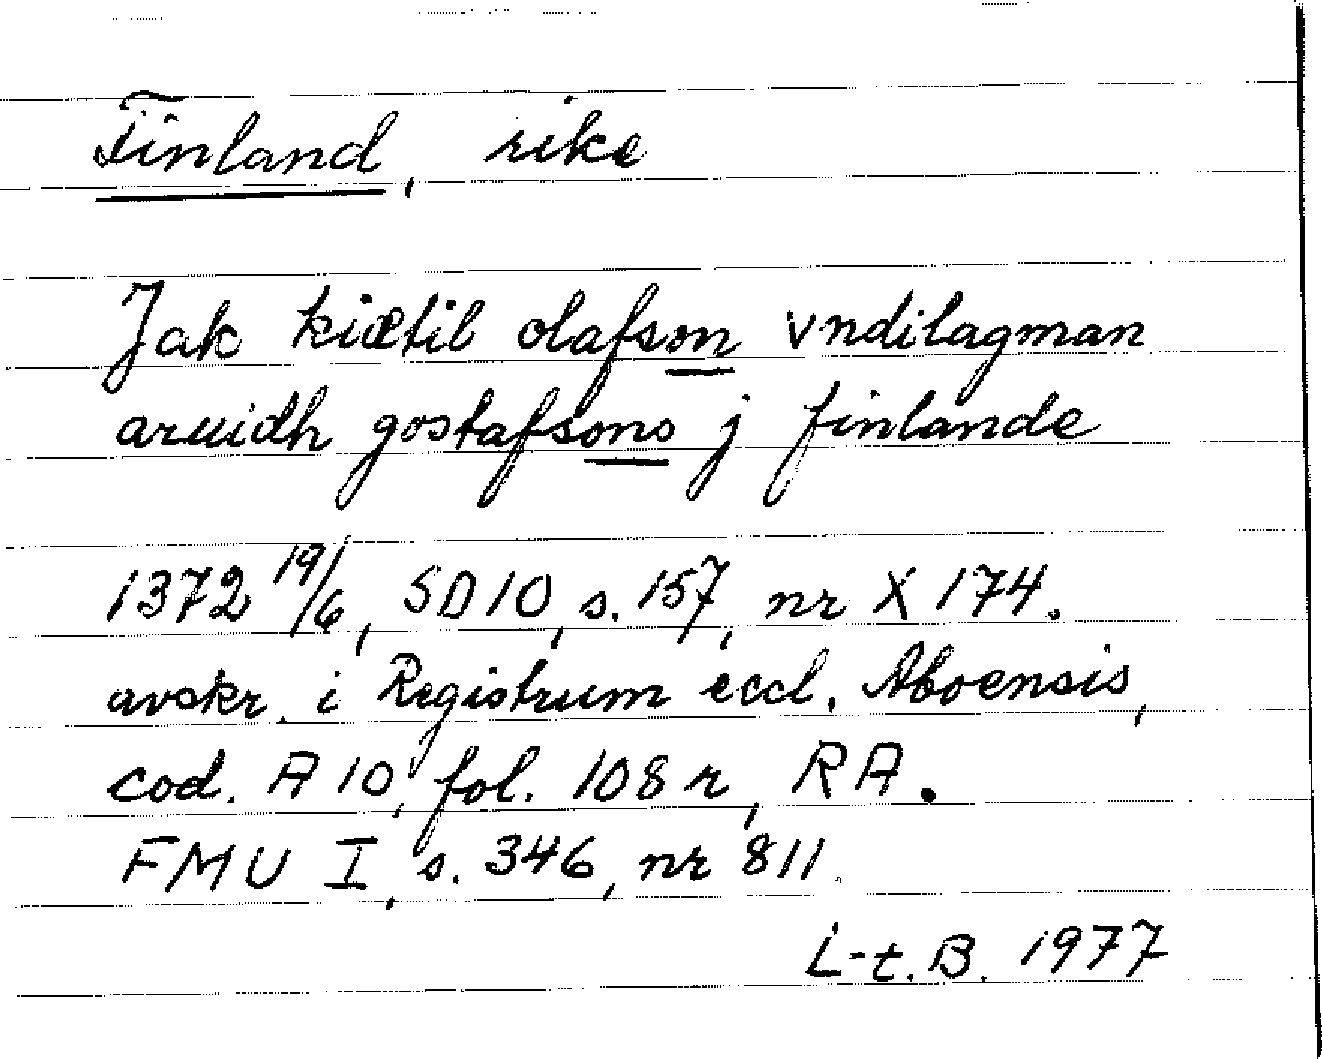 Finland, rike
Jak kiætil olafson vndilagman
aruidh gostafsons j finlande
1372 19/6, SD 10, s. 157, nr X 174.
avskr. i Registrum eccl. Aboensis,
cod. A 10, fol. 108 r, RA.
FMU I, s. 346, nr 811.
L-t. B. 1977